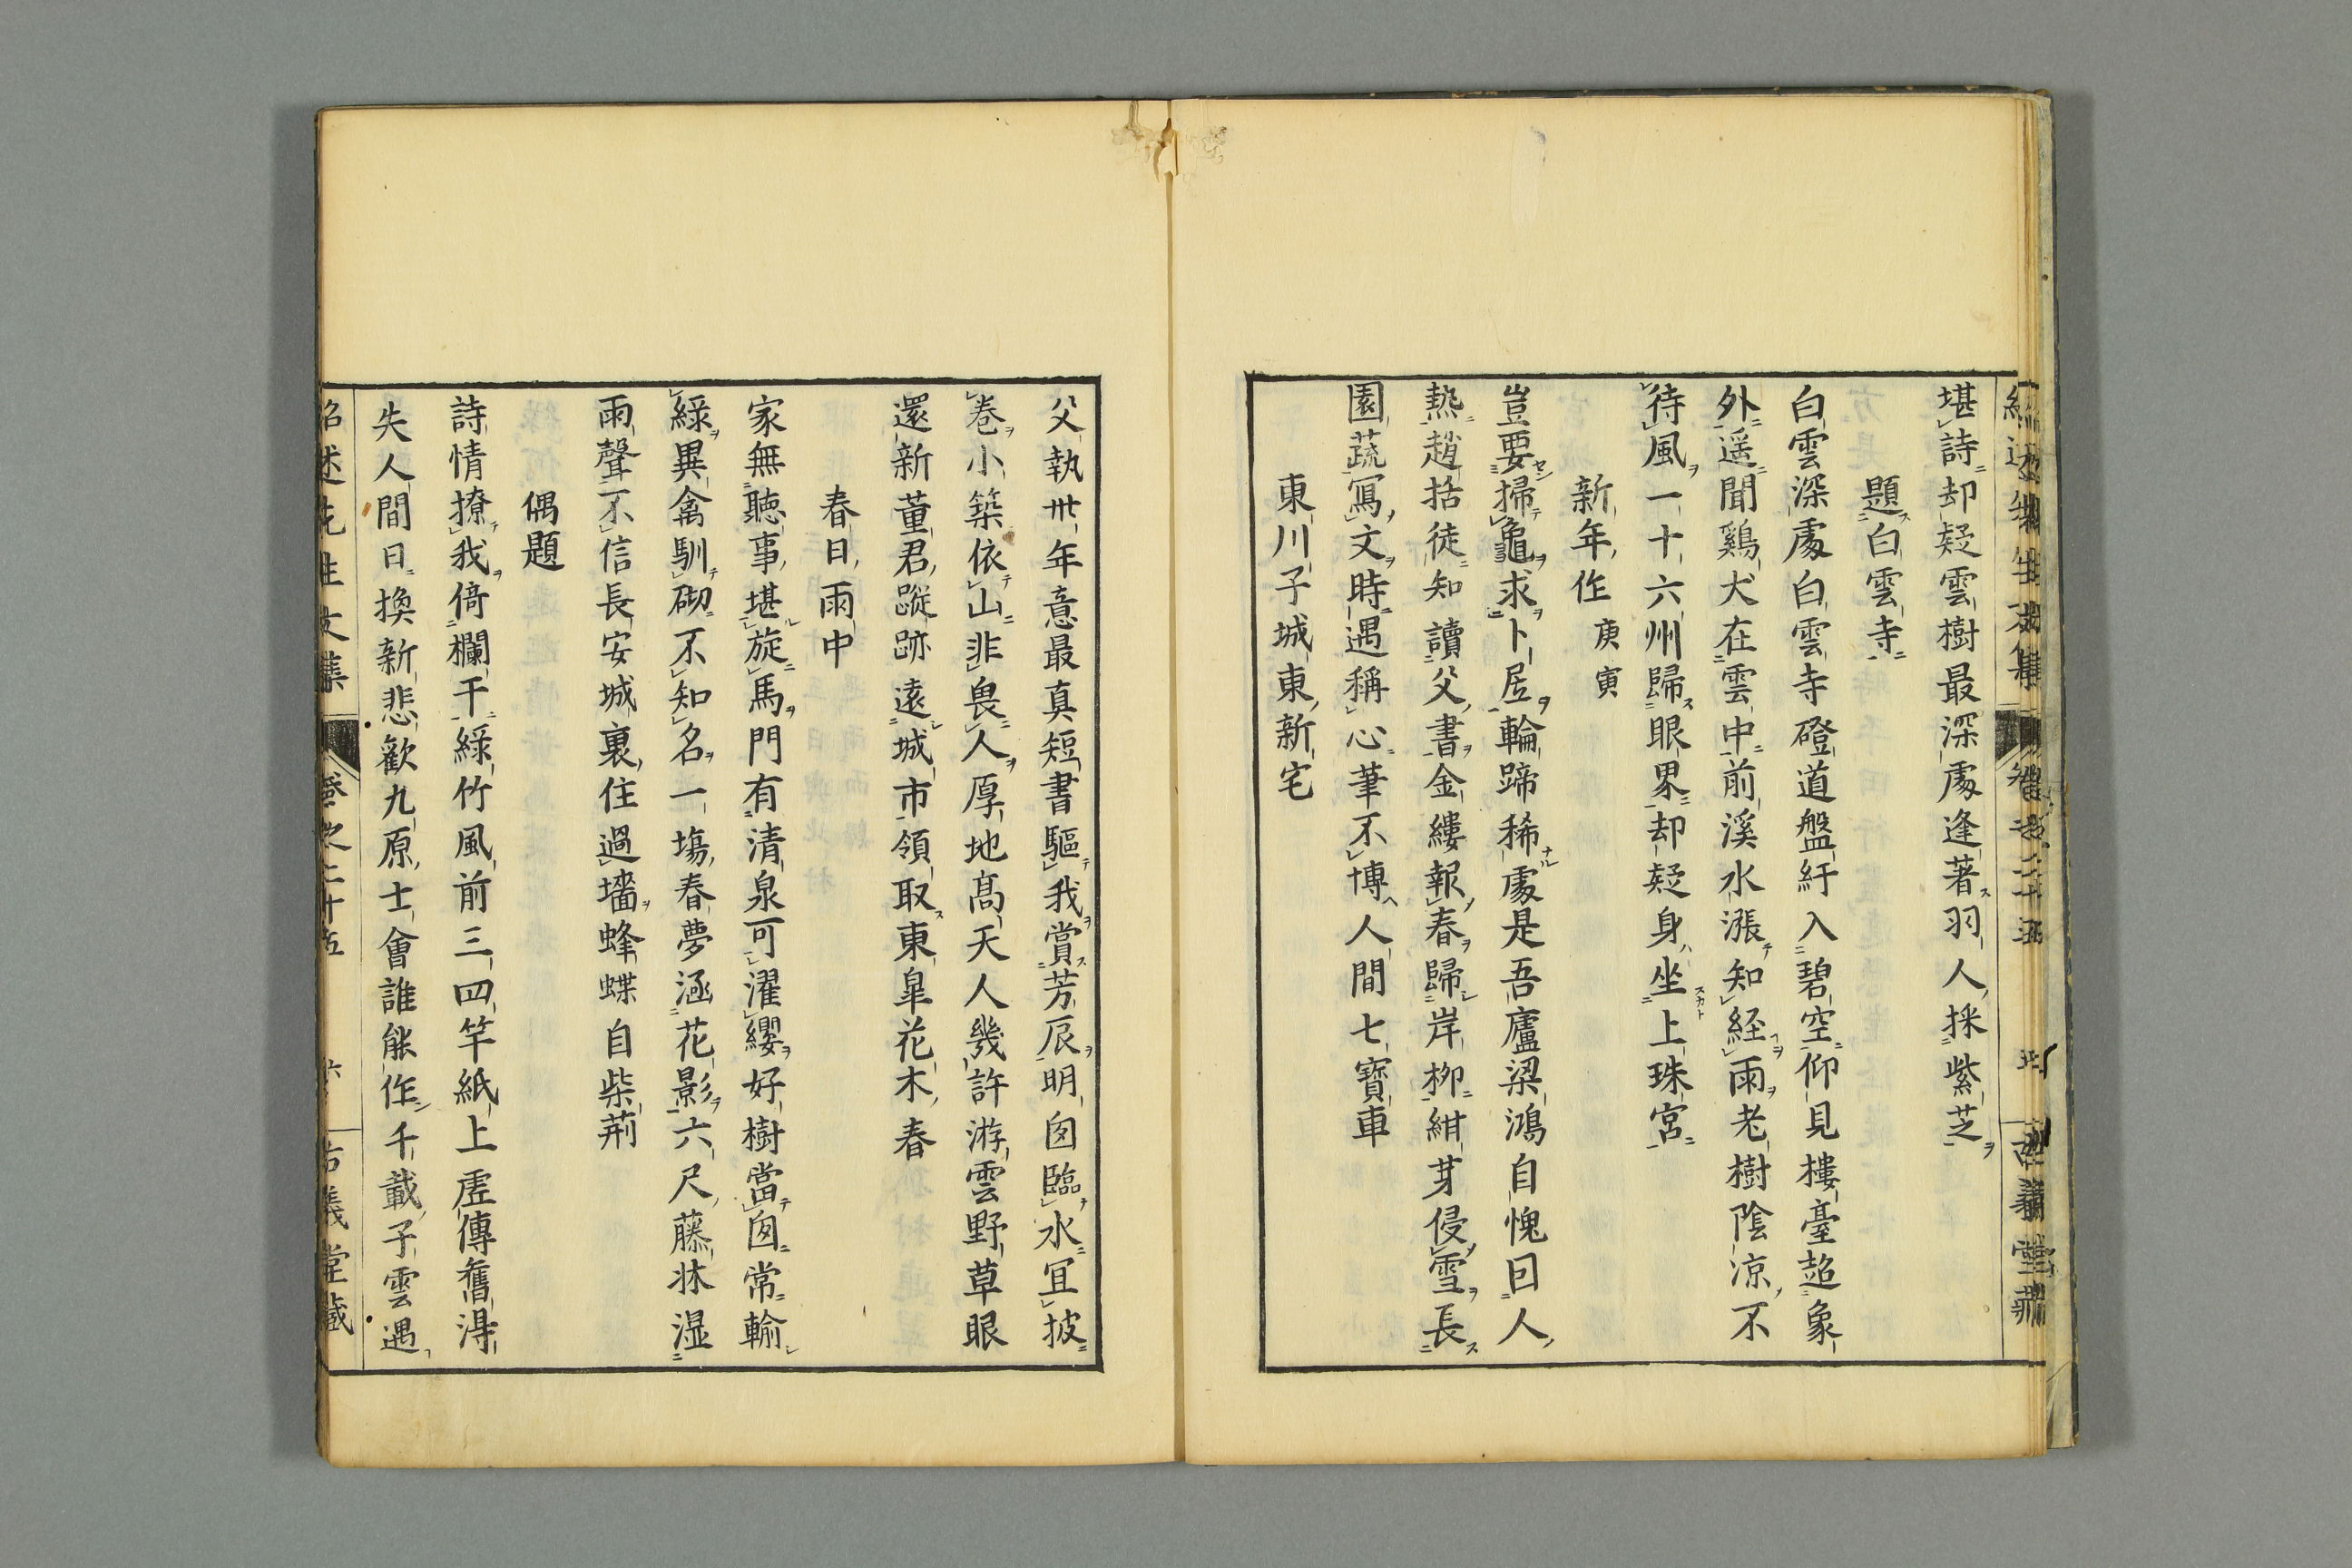 堪詩却疑雲樹最深處逢著羽人採紫芝
題白雲寺
白雲深處白雲寺磴道盤紆入碧空仰見樓臺超象
外遥聞鷄犬在雲中前溪水漲知経雨老樹陰凉不
待風一十六州歸眼界却疑身坐上珠宮
新年作 庚寅
豈要掃龜求卜居輪蹄稀處是吾廬梁鴻自愧囙人
熱趙括徒知讀父書金縷報春歸岸栁紺芽侵雪長
園蔬冩文時遇稱心筆不博人間七寶車
東川子城東新宅
父執卅年意最真短書驅我賞芳辰明囱臨水冝披
卷小築依山非畏人厚地髙天人幾許游雲野草眼
還新董君蹤跡遠城市領取東皐花木春
春日雨中
家無聽事堪旋馬門有清泉可濯纓好樹當囱常輸
綠異禽馴砌不知名一塲春夢涵花影六尺藤牀湿
雨聲不信長安城裏住過墻蜂蝶自柴荊
偶題
詩情撩我倚欄干綠竹風前三四竿紙上虚傳舊淂
失人間日換新悲歡九原士會誰能作千載子雲遇
紹述先生文集 卷之二十五 六 古義堂藏